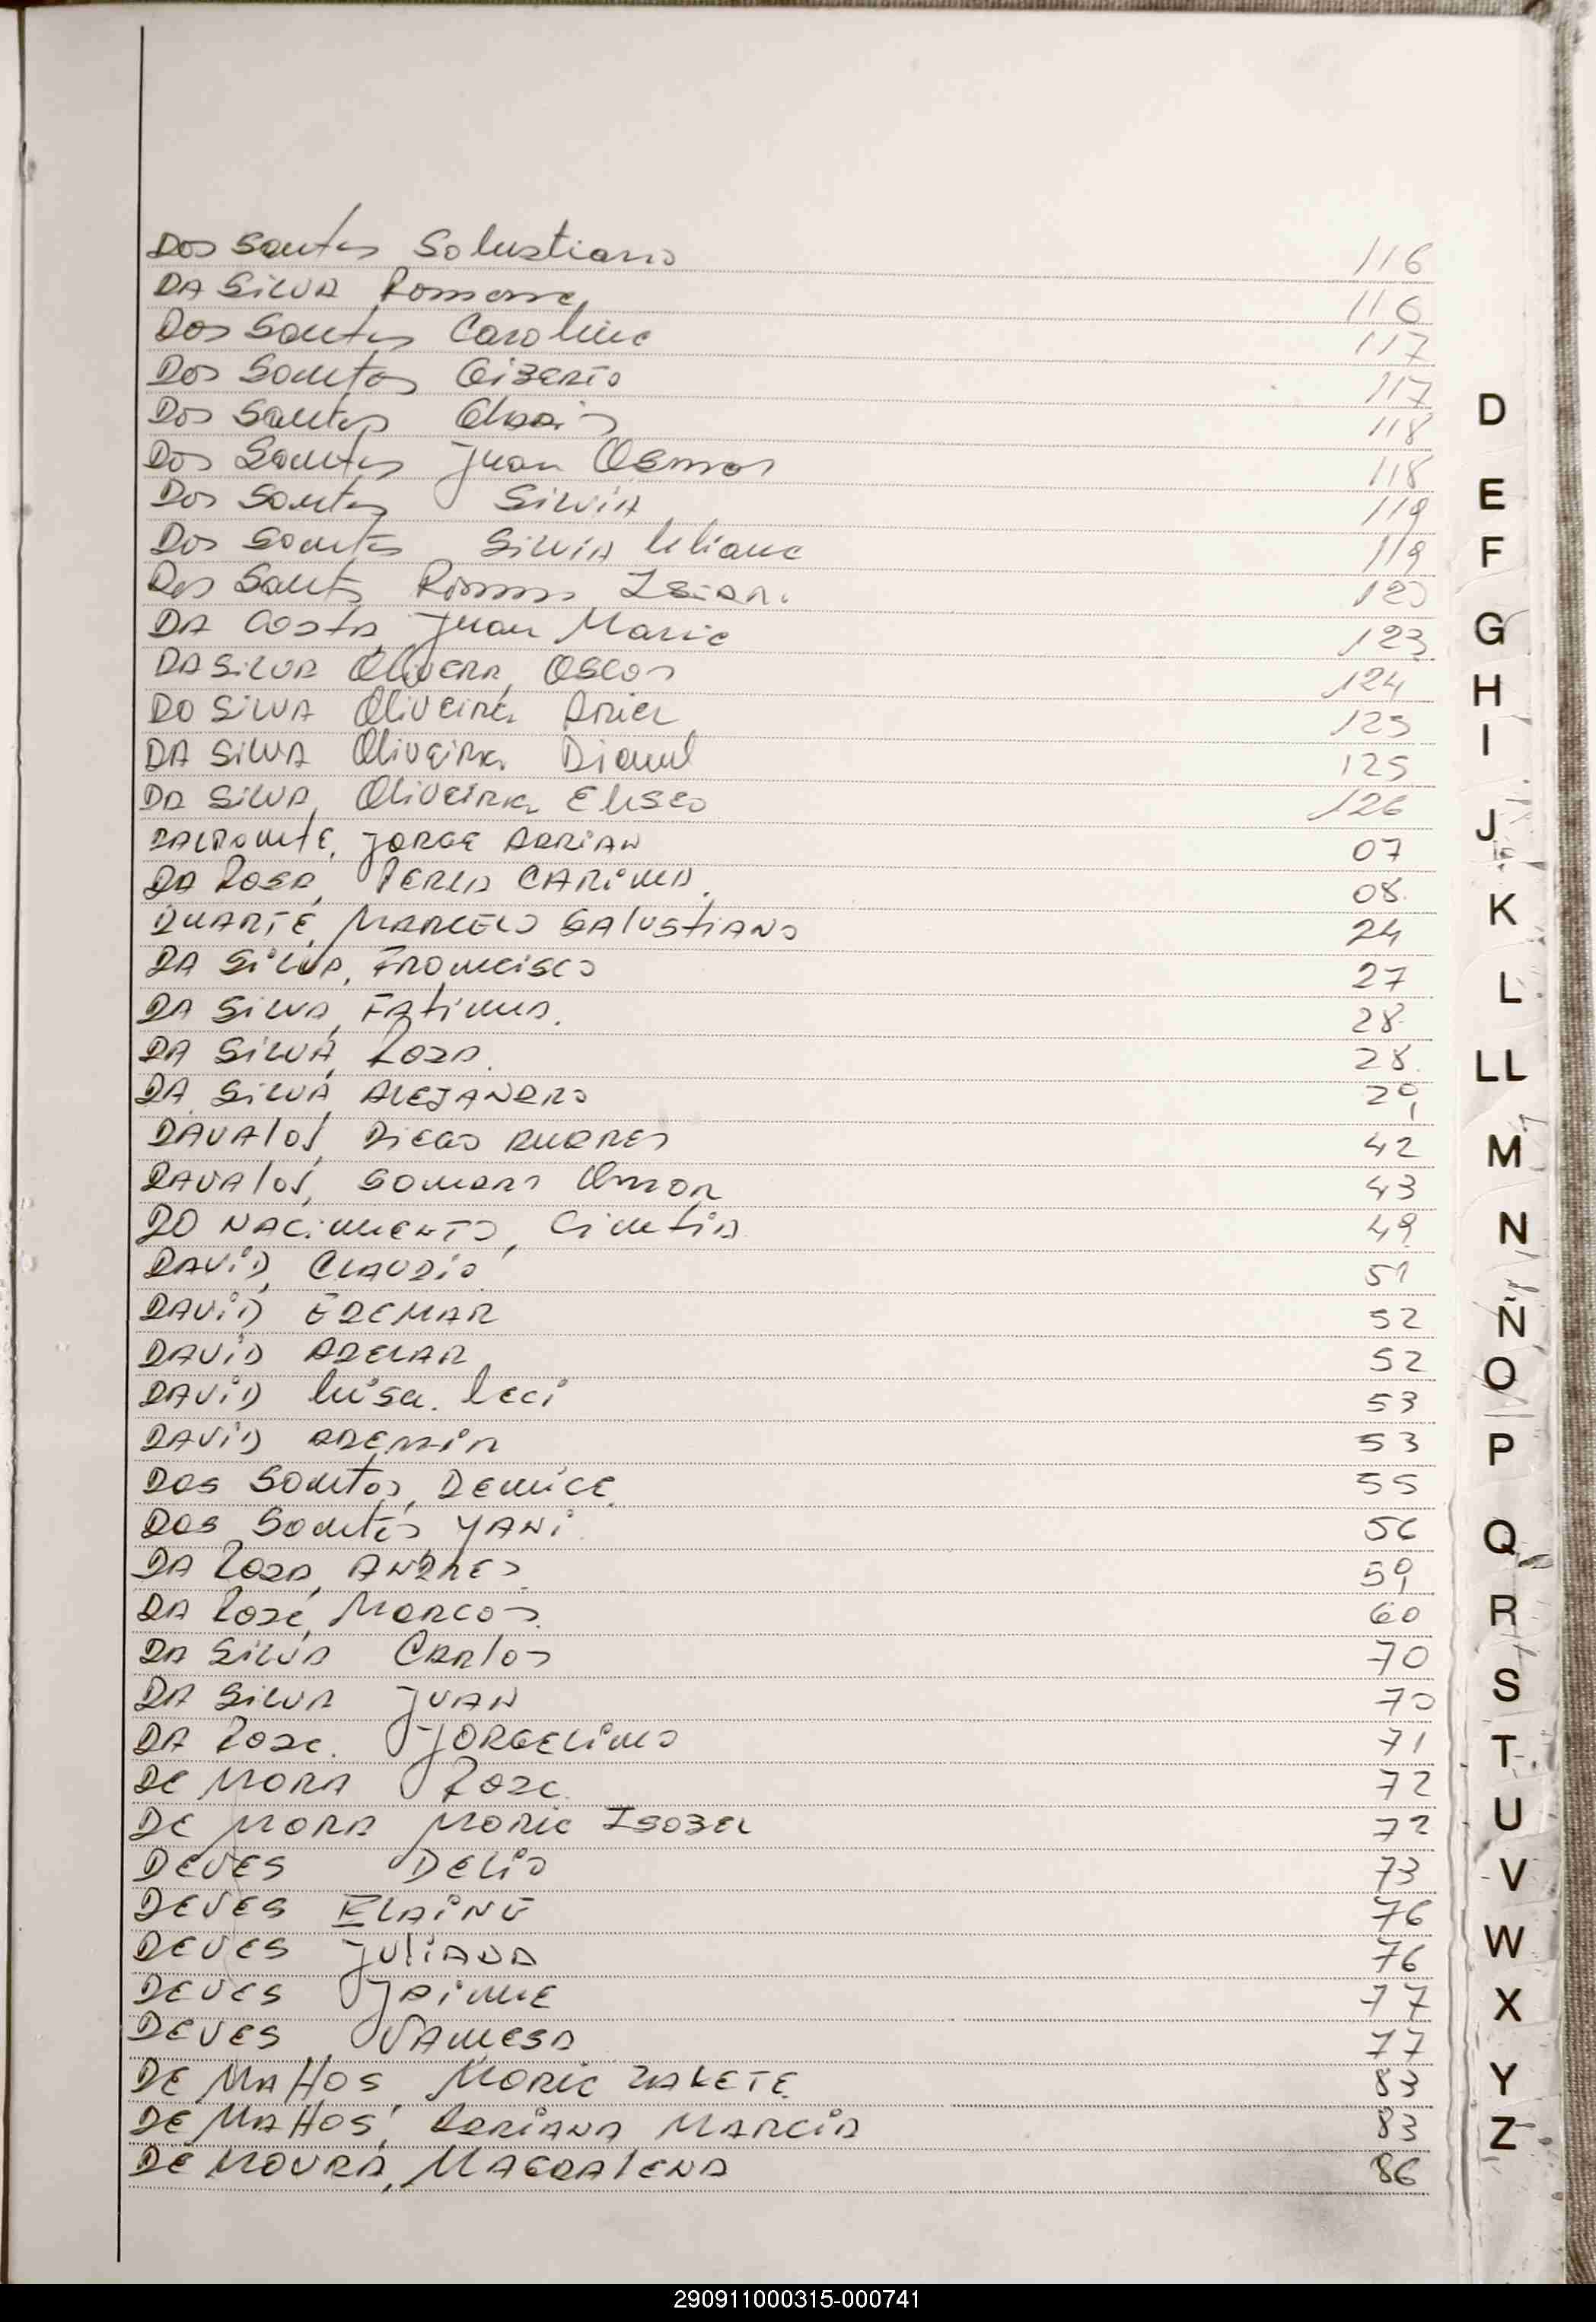 Dos Santos Solustiano 116
DA SILVA Romana 116
Dos Santos Carolina 117
Dos Santos Gizerto 117
Dos Santos 118
Dos Santos Juan Osmar 118
Dos Santos SILVIA 119
Dos Santos SILVIA Liliana 119
Dos Santos Ramos 123
DA Costa, Juan Maria 123
DA SILVA OLIVERA, OSCAR 124
DO SILVA OLIVEIRA ARIEL 125
DA SILVA OLIVEIRA Daniel 125
DA SILVA, OLIVEIRA ELISEO 126
JORGE ADRIAN 07
DA ROSA, PERLA CARINA. 08.
DUARTE, MARCELO SALUSTIANO 24
DA SILVA, FRANCISCO 27
DA SILVA, FATIMA. 28.
DA SILVA, ROSA. 28.
DA SILVA, ALEJANDRO 29
DAVALOS, DIEGO ANDRES 42
DAVALOS, Omar 43
DO NACIMIENTO, Cintia 49
DAVID, CLAUDIO 51
DAVID EDEMAR 52
DAVID ADELAR 52
DAVID Luisa. Leci 53
DAVID ADEMIR 53
DOS SANTOS, DENICE 55
DOS SANTOS YANI 56
DA ROSA, ANDRES. 59
DA ROSA, MARCOS. 60
DA SILVA CARLOS 70
DA SILVA JUAN 70
DA ROSA. JORGELINA 71
DE MORA ROSA. 72
DE MORA MARIA ISABEL 72
DEVES DELIO 73
DEVES ELAINE 76
DEVES JULIANA 76
DEVES JAIME 77
DEVES VANESA 77
DE MATTOS, MARIA ZALETE. 83
DE MATTOS, ADRIANA MARCIA 83
DE MOURA, MAGDALENA 86
D
E
F
G
H
I
J
K
L
LL
M
N
Ñ
O
P
Q
R
S
T
U
V
W
X
Y
Z
290911000315-000741